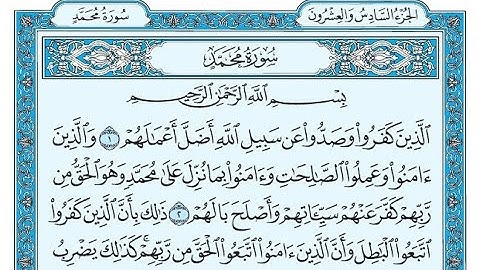 الجزء السادس والعشرون
سورة محمد
سُورَةُ مُحَمَّد
بِسْمِ اللَّهِ الرَّحْمَٰنِ الرَّحِيمِ
الَّذِينَ كَفَرُوا۟ وَصَدُّوا۟ عَن سَبِيلِ اللَّهِ أَضَلَّ أَعْمَٰلَهُمْ ١ وَالَّذِينَ
ءَامَنُوا۟ وَعَمِلُوا۟ الصَّٰلِحَٰتِ وَءَامَنُوا۟ بِمَا نُزِّلَ عَلَىٰ مُحَمَّدٍ وَهُوَ الْحَقُّ مِن
رَّبِّهِمْ كَفَّرَ عَنْهُمْ سَيِّـَٔاتِهِمْ وَأَصْلَحَ بَالَهُمْ ٢ ذَٰلِكَ بِأَنَّ الَّذِينَ كَفَرُوا۟
اتَّبَعُوا۟ الْبَٰطِلَ وَأَنَّ الَّذِينَ ءَامَنُوا۟ اتَّبَعُوا۟ الْحَقَّ مِن رَّبِّهِمْ ۚ كَذَٰلِكَ يَضْرِبُ